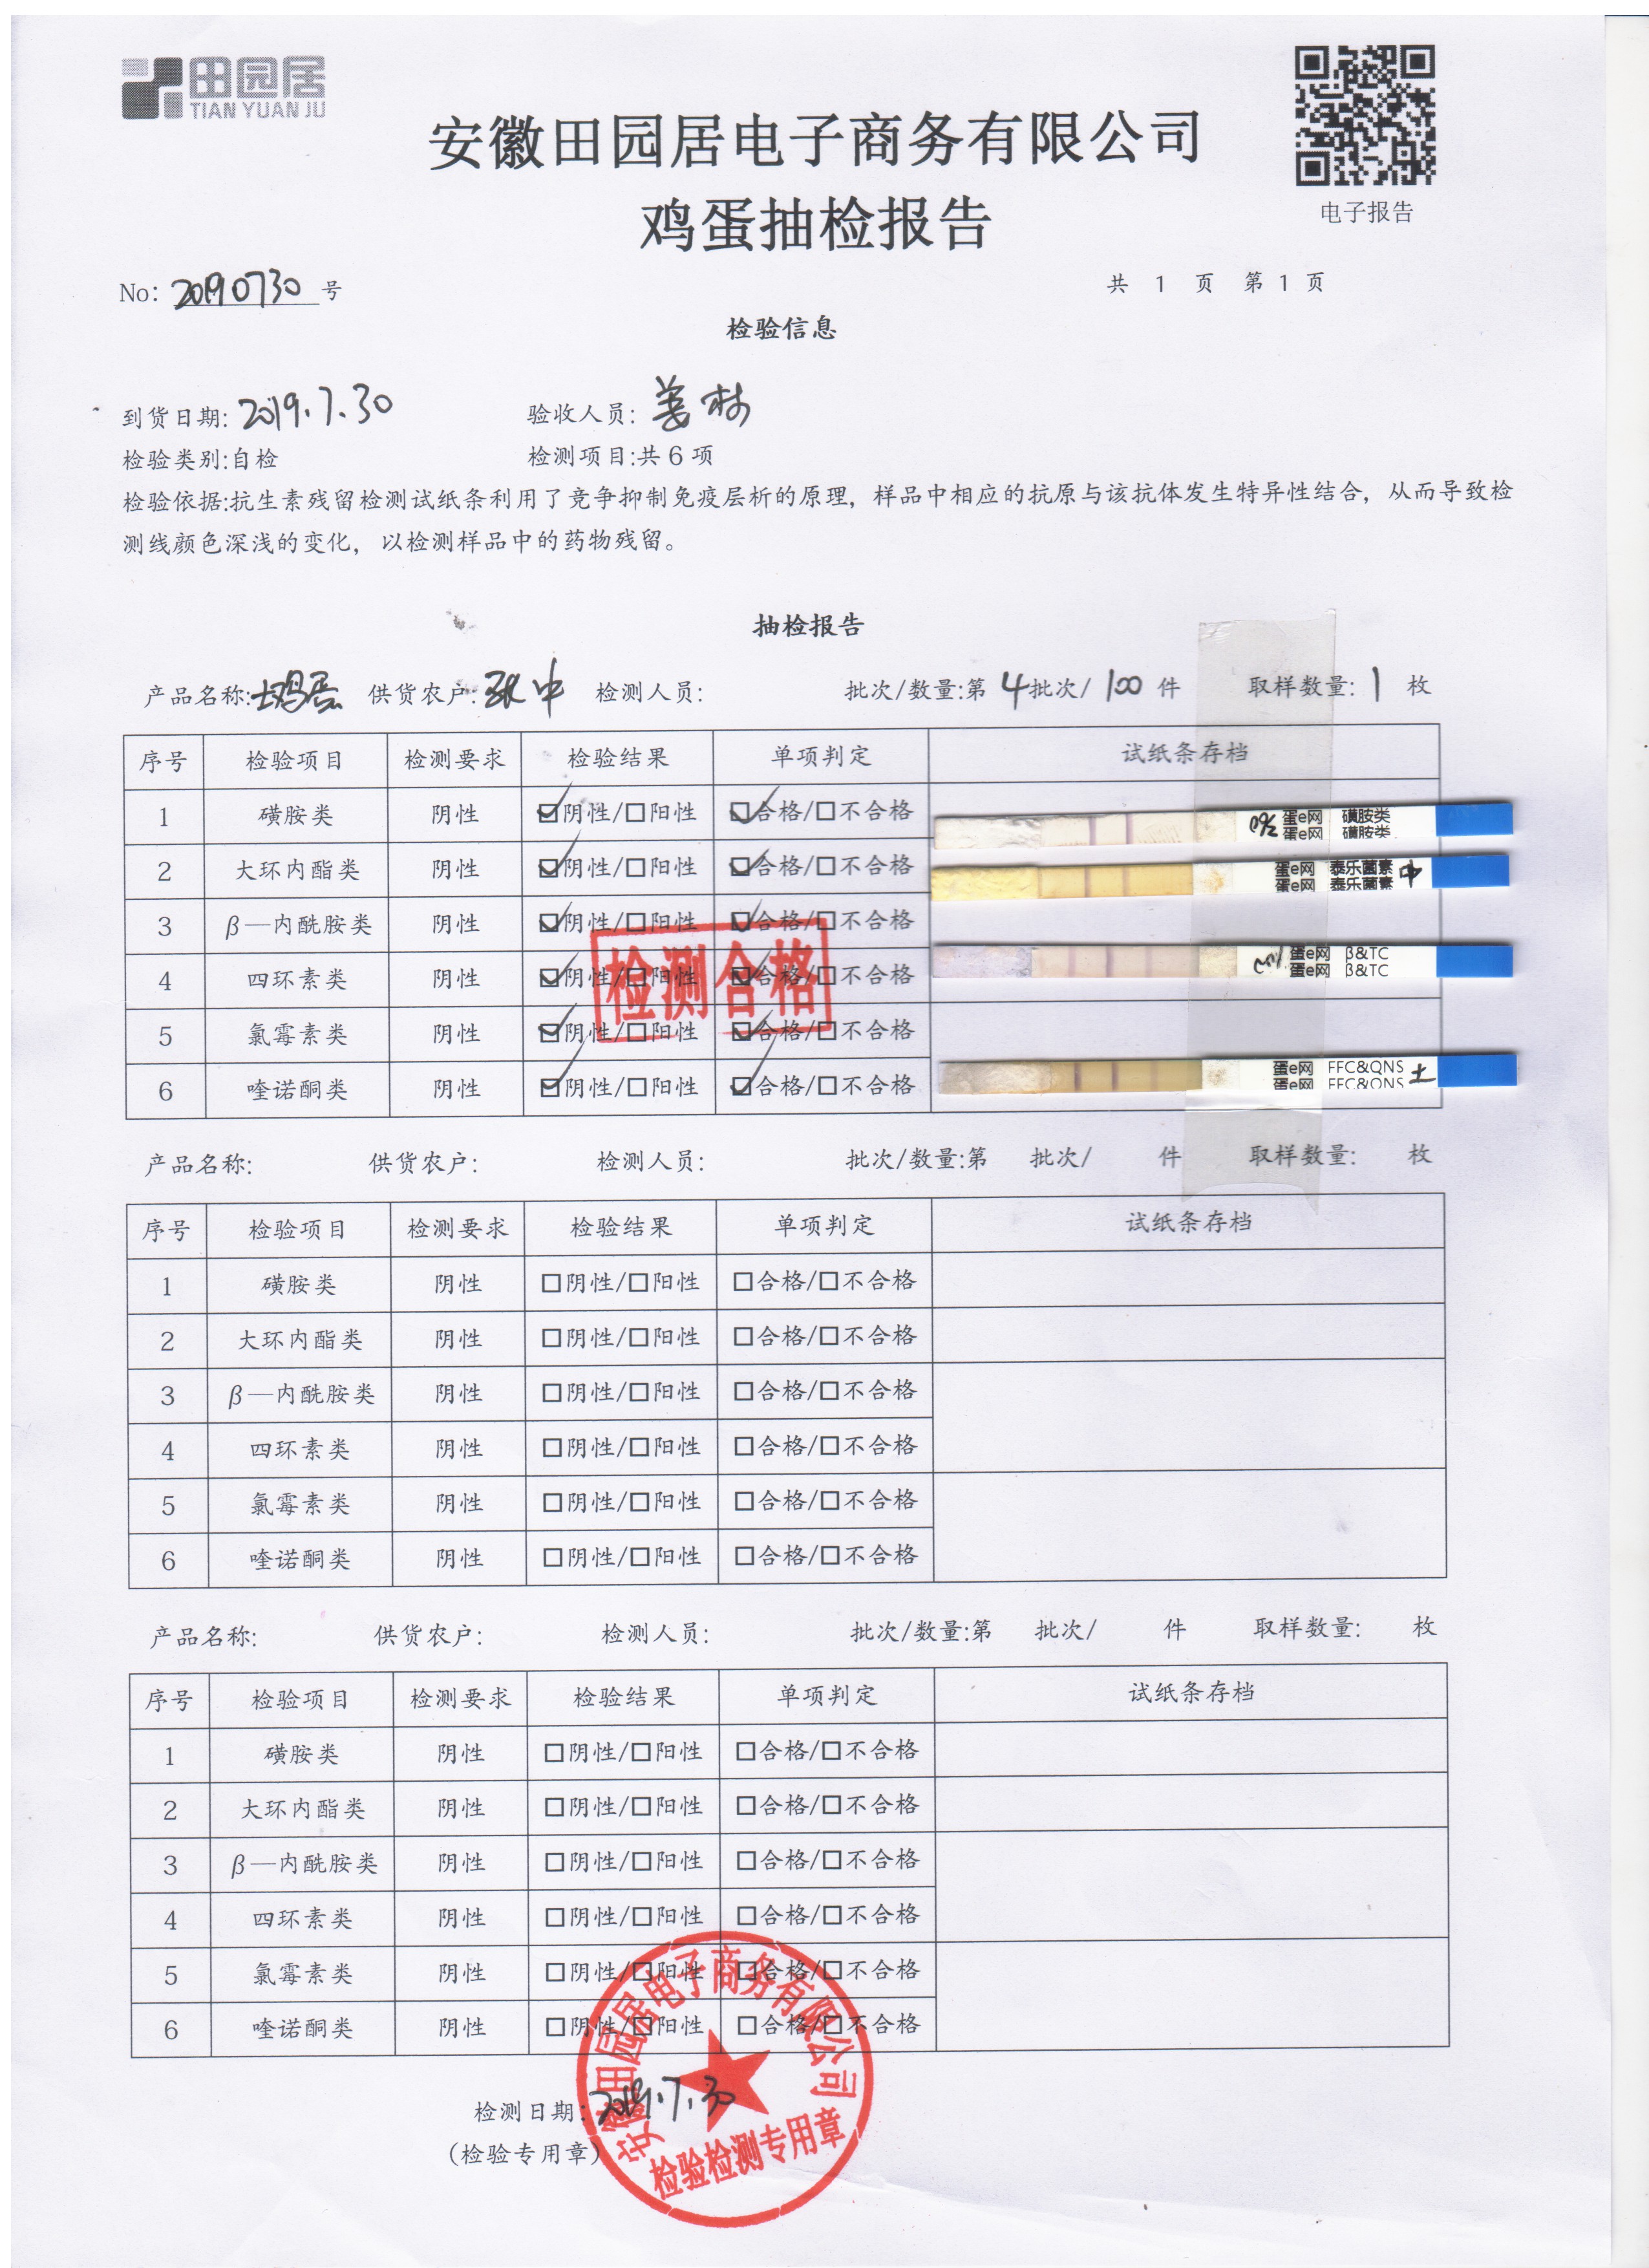 田园居
TIAN YUAN JU
安徽田园居电子商务有限公司
鸡蛋抽检报告
电子报告
No: 20190730 号
共 1 页 第 1 页
检验信息
到货日期: 2019.7.30 验收人员: 姜林
检验类别:自检 检测项目:共 6 项
检验依据:抗生素残留检测试纸条利用了竞争抑制免疫层析的原理，样品中相应的抗原与该抗体发生特异性结合，从而导致检
测线颜色深浅的变化，以检测样品中的药物残留。
抽检报告
产品名称:土鸡蛋 供货农户: 中 检测人员: 批次/数量:第 4 批次/ 100 件 取样数量: 1 枚
序号 检验项目 检测要求 检验结果 单项判定 试纸条存档
1 磺胺类 阴性 ☑阴性/☐阳性 ☑合格/☐不合格 蛋e网 磺胺类
蛋e网 磺胺类
2 大环内酯类 阴性 ☑阴性/☐阳性 ☑合格/☐不合格 蛋e网 泰乐菌素 中
蛋e网 泰乐菌素
3 β—内酰胺类 阴性 ☑阴性/☐阳性 ☑合格/☐不合格
4 四环素类 阴性 ☑阴性/☐阳性 ☑合格/☐不合格 蛋e网 β&TC
蛋e网 β&TC
检测合格
5 氯霉素类 阴性 ☑阴性/☐阳性 ☑合格/☐不合格
6 喹诺酮类 阴性 ☑阴性/☐阳性 ☑合格/☐不合格 蛋e网 FFC&QNS 土
蛋e网 FFC&QNS
产品名称: 供货农户: 检测人员: 批次/数量:第 批次/ 件 取样数量: 枚
序号 检验项目 检测要求 检验结果 单项判定 试纸条存档
1 磺胺类 阴性 ☐阴性/☐阳性 ☐合格/☐不合格
2 大环内酯类 阴性 ☐阴性/☐阳性 ☐合格/☐不合格
3 β—内酰胺类 阴性 ☐阴性/☐阳性 ☐合格/☐不合格
4 四环素类 阴性 ☐阴性/☐阳性 ☐合格/☐不合格
5 氯霉素类 阴性 ☐阴性/☐阳性 ☐合格/☐不合格
6 喹诺酮类 阴性 ☐阴性/☐阳性 ☐合格/☐不合格
产品名称: 供货农户: 检测人员: 批次/数量:第 批次/ 件 取样数量: 枚
序号 检验项目 检测要求 检验结果 单项判定 试纸条存档
1 磺胺类 阴性 ☐阴性/☐阳性 ☐合格/☐不合格
2 大环内酯类 阴性 ☐阴性/☐阳性 ☐合格/☐不合格
3 β—内酰胺类 阴性 ☐阴性/☐阳性 ☐合格/☐不合格
4 四环素类 阴性 ☐阴性/☐阳性 ☐合格/☐不合格
5 氯霉素类 阴性 ☐阴性/☐阳性 ☐合格/☐不合格
6 喹诺酮类 阴性 ☐阴性/☐阳性 ☐合格/☐不合格
安徽田园居电子商务有限公司
检测日期: 2019.7.30
(检验专用章)
检验检测专用章